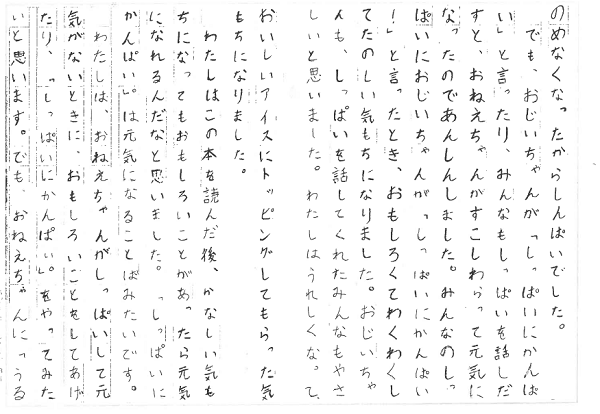 のめなくなったからしんぱいでした。
でも、おじいちゃんが「しっぱいにかんぱ
い」と言ったり、みんなもしっぱいを話しだ
すと、おねえちゃんがすこしわらって元気に
なったのであんしんしました。みんなのしっ
ぱいにおじいちゃんが「しっぱいにかんぱい
！」と言ったとき、おもしろくてわくわくし
てたのしい気もちになりました。おじいちゃ
んも、しっぱいを話してくれたみんなもやさ
しいと思いました。わたしはうれしくなって、
おいしいアイスにトッピングしてもらった気
もちになりました。
わたしはこの本を読んだ後、かなしい気も
ちになってもおもしろいことがあったら元気
になれるんだなと思いました。「しっぱいに
かんぱい」。は元気になることばみたいです。
わたしは、おねえちゃんがしっぱいして元
気がないときに、おもしろいことをしてあげ
たり、「しっぱいにかんぱい」。をやってみた
いと思います。でも、おねえちゃんに「うる